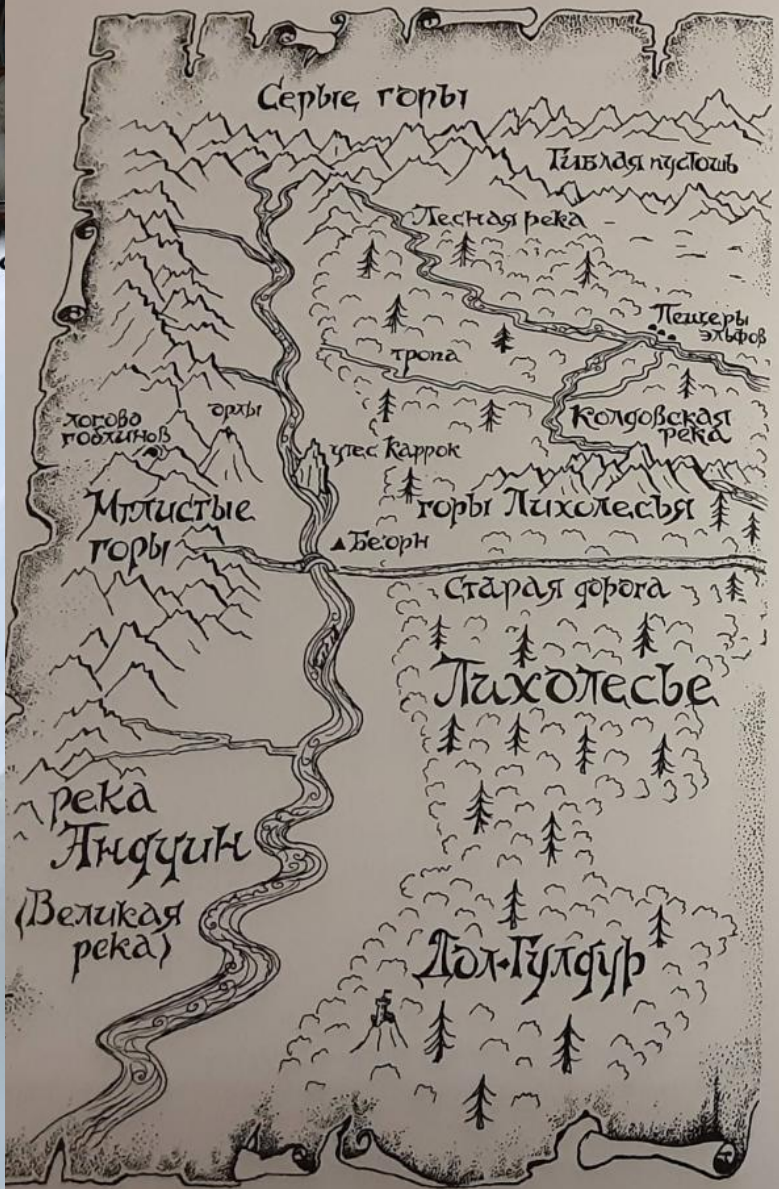 Серые горы
Гиблая пустошь
Лесная река
Пещеры
эльфов
тропа
Колдовская
река
логово
гоблинов
орлы
утес Каррок
Мглистые
горы
горы Лихолесья
Беорн
Старая дорога
Лихолесье
река
Андуин
(Великая
река)
Дол-Гулдур